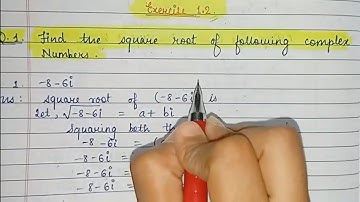 Exercise 1.2
Q.1 Find the square root of following complex
Numbers.
1. -8-6i
Ans: Square root of (-8-6i) is
Let, √-8-6i = a+bi
Squaring both
-8-6i = (
-8-6i =
-8-6i =
-8-6i =